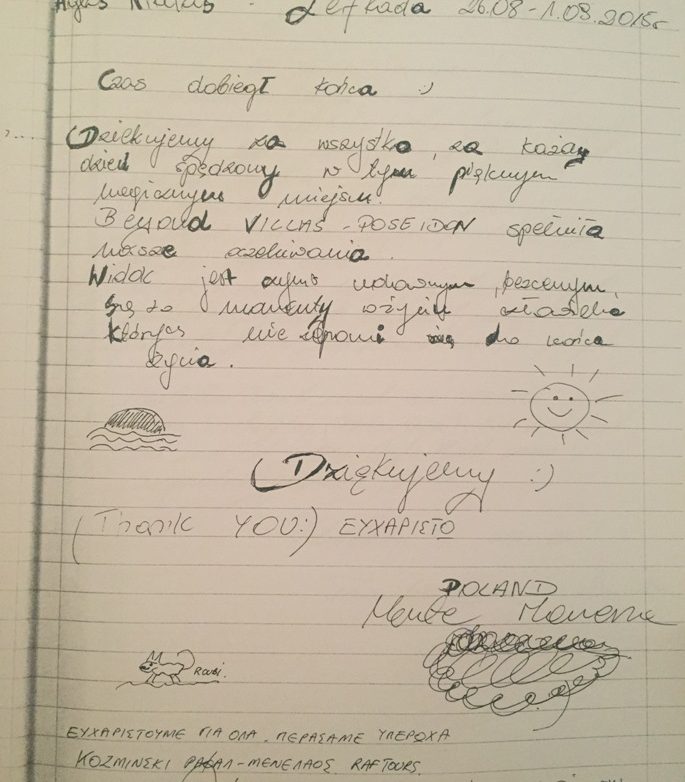 Agios Nikitas - Lefkada 26.08-1.09.2015r
Czas dobiegł końca :)
Dziękujemy za wszystko, za każdy
dzień spędzony w tym pięknym
magicznym miejscu.
Beyond VILLAS - POSEIDON spełniła
nasze oczekiwania.
Widok jest cudownym, bezcennym,
są to momenty w życiu człowieka
których nie zapomni się do końca
życia.
Dziękujemy :)
(Thank YOU:) ΕΥΧΑΡΙΣΤΩ
POLAND
Roubi.
ΕΥΧΑΡΙΣΤΟΥΜΕ ΓΙΑ ΟΛΑ, ΠΕΡΑΣΑΜΕ ΥΠΕΡΟΧΑ
KOZMINSKI ΡΑΦΑΛ-ΜΕΝΕΛΑΟΣ RAFTOURS.